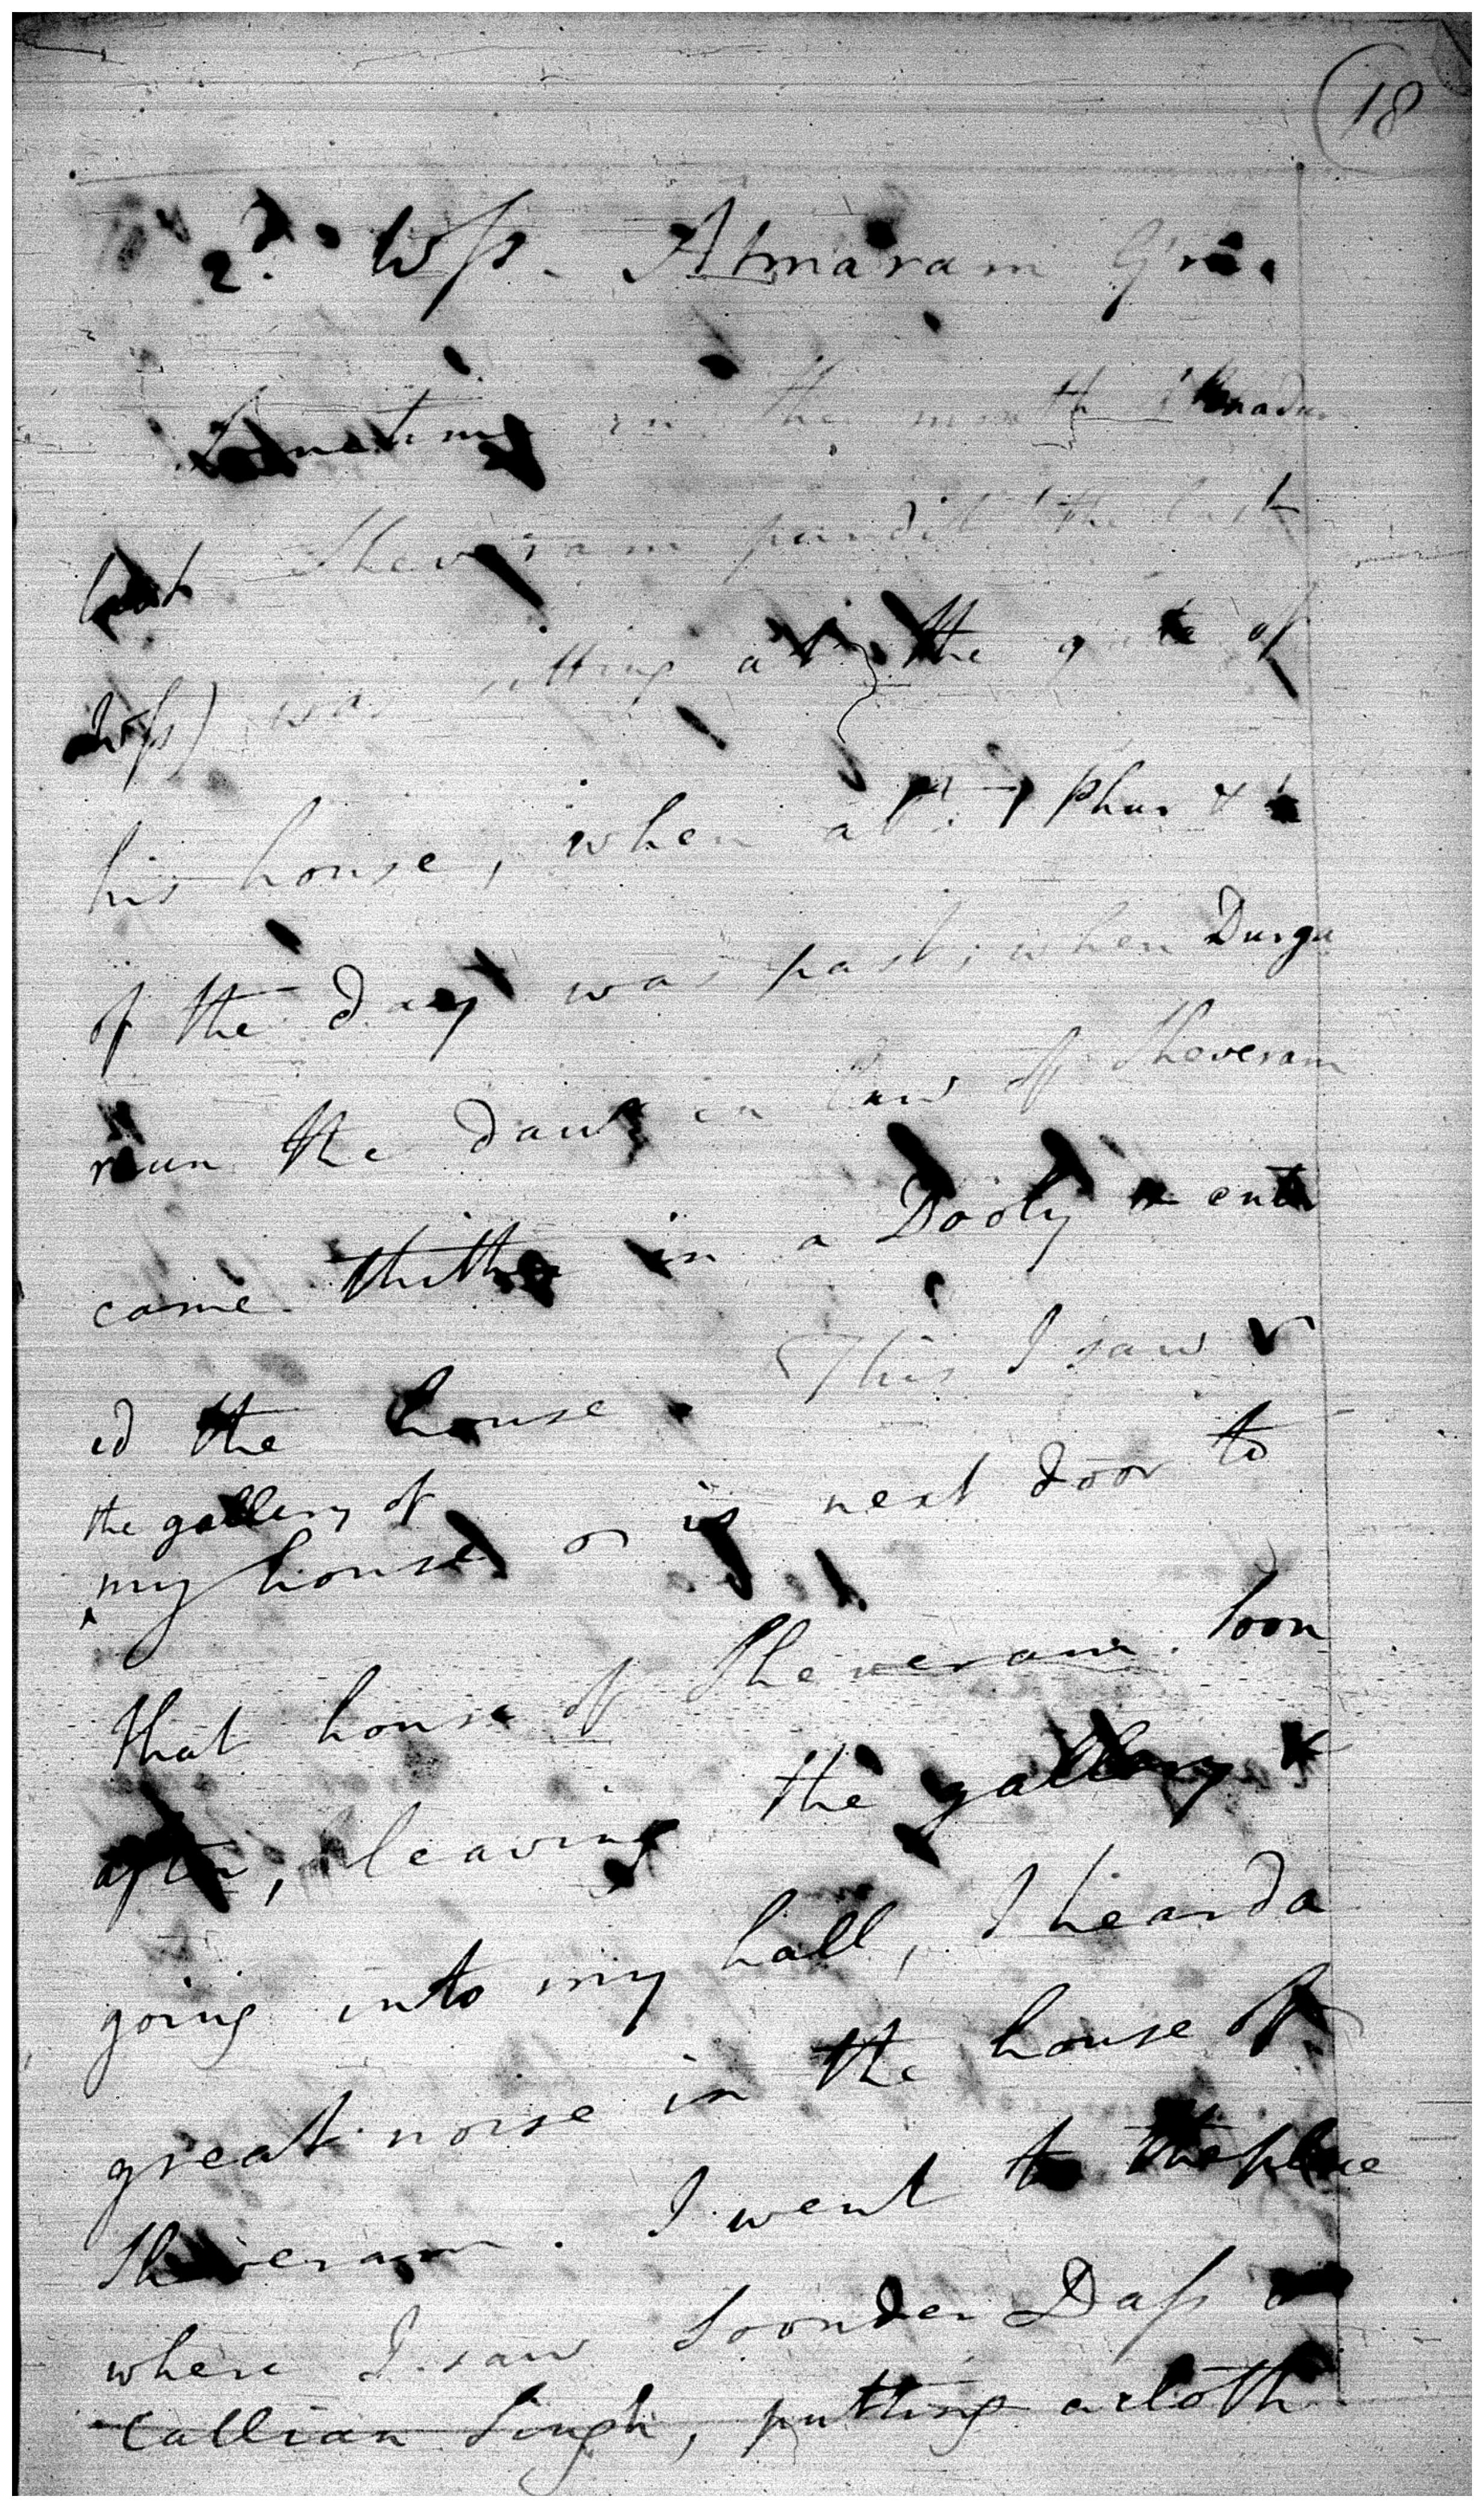 18
2. Wss. Atmaram
Sometime in the month
last Sheveram pundit (the last
Wss) was sitting at the gate of
his house, when
of the day was past, when Durga
the in law of Sheveram
came thither in a Dooly & enter
ed the house. This I saw
the gallery of
my house is next door to
that house of Sheveram. Soon
after, leaving the gallery &
going into my hall, I heard a
great noise in the house of
Sheveram. I went to the place
where I saw Soonder Dass &
Callian Singh, putting a cloth